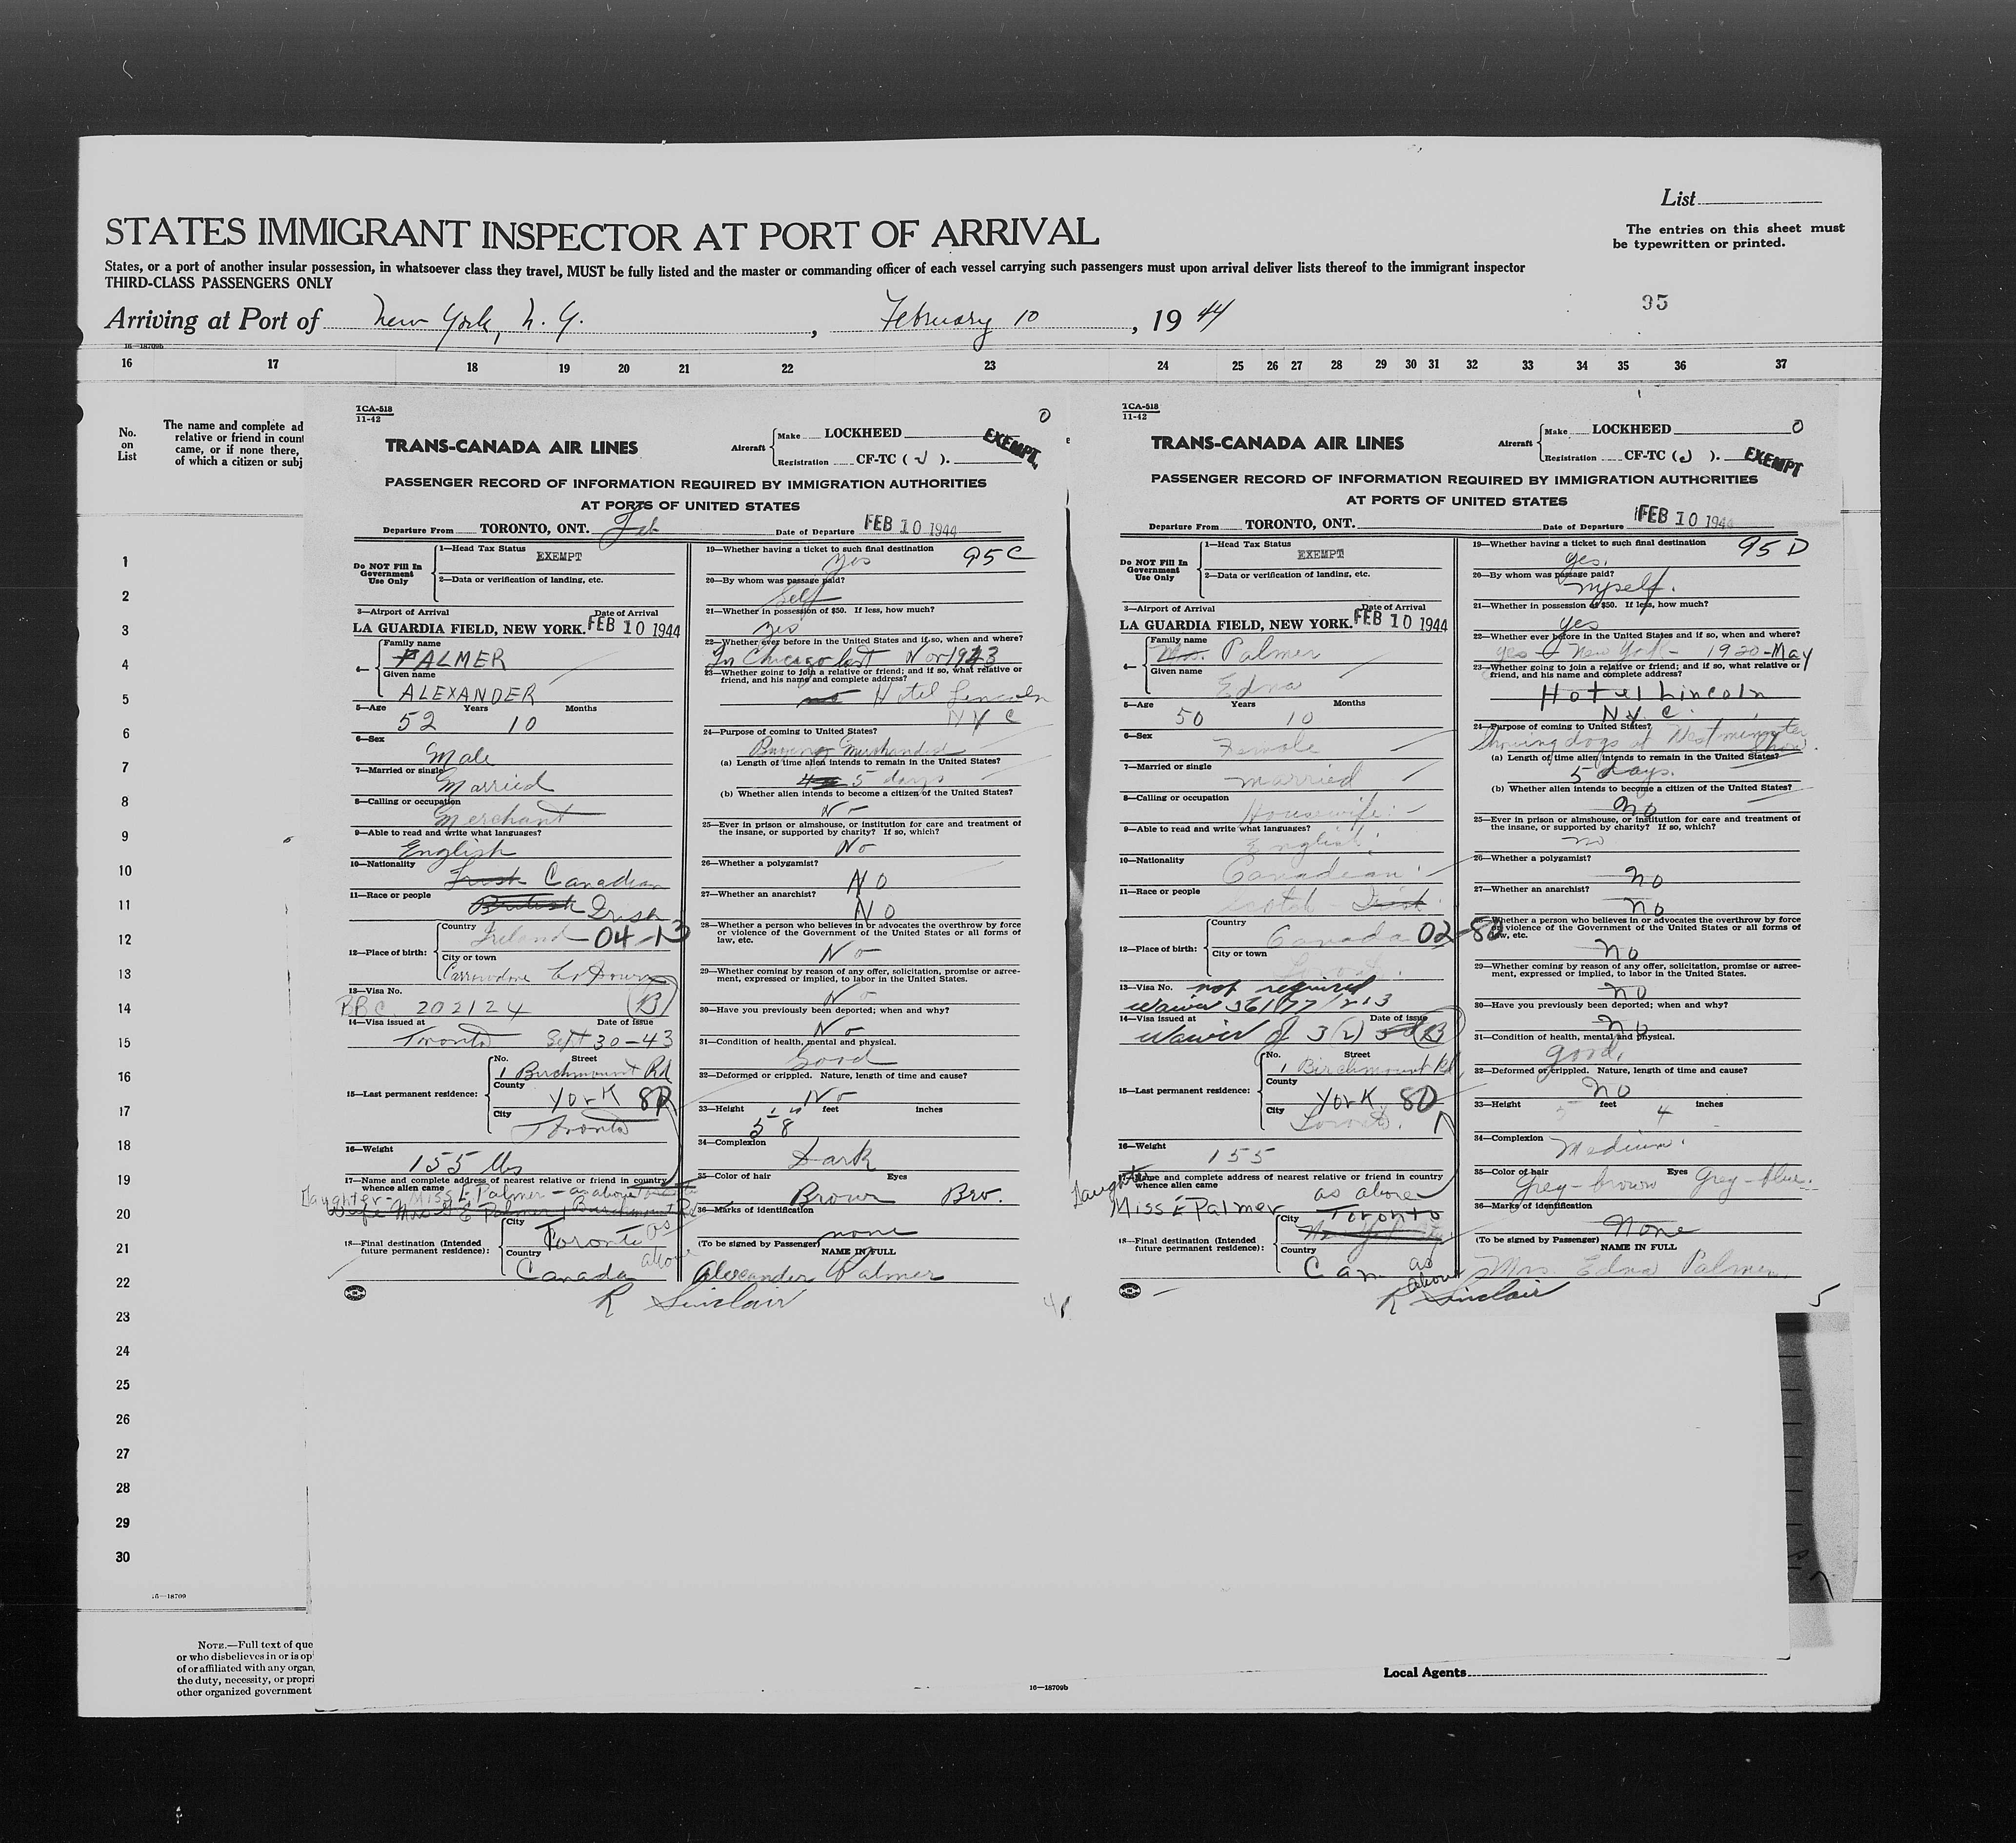 List
STATES IMMIGRANT INSPECTOR AT PORT OF ARRIVAL
The entries on this sheet must
be typewritten or printed.
States, or a port of another insular possession, in whatsoever class they travel, MUST be fully listed and the master or commanding officer of each vessel carrying such passengers must upon arrival deliver lists thereof to the immigrant inspector
THIRD-CLASS PASSENGERS ONLY
95
Arriving at Port of New York, N. Y. , February 10 , 19 44
16—18709b
16 17 18 19 20 21 22 23 24 25 26 27 28 29 30 31 32 33 34 35 36 37
No.
on
List
The name and complete ad
relative or friend in count
came, or if none there,
of which a citizen or subj
1
2
3
4
5
6
7
8
9
10
11
12
13
14
15
16
17
18
19
20
21
22
23
24
25
26
27
28
29
30
16—18709
NOTE.—Full text of que
or who disbelieves in or is op
of or affiliated with any organ
the duty, necessity, or propri
other organized government
TCA-518
11-42
0
TRANS-CANADA AIR LINES
Aircraft
Make LOCKHEED
Registration CF-TC ( J ).
EXEMPT
PASSENGER RECORD OF INFORMATION REQUIRED BY IMMIGRATION AUTHORITIES
AT PORTS OF UNITED STATES
Departure From TORONTO, ONT. Feb Date of Departure FEB 10 1944
Do NOT Fill In
Government
Use Only
1—Head Tax Status
EXEMPT
2—Data or verification of landing, etc.
3—Airport of Arrival Date of Arrival
LA GUARDIA FIELD, NEW YORK. FEB 10 1944
4—
Family name
PALMER
Given name
ALEXANDER
5—Age Years Months
52 10
6—Sex
Male
7—Married or single
Married
8—Calling or occupation
Merchant
9—Able to read and write what languages?
English
10—Nationality
Irish Canadian
11—Race or people
British Irish
12—Place of birth:
Country
Ireland 04-13
City or town
Co Down
13—Visa No.
BBC 202124 (B)
14—Visa issued at Date of Issue
Toronto Sept 30-43
15—Last permanent residence:
No. Street
1 Birchmount Rd
County
York 80
City
Toronto
16—Weight
155 lbs
17—Name and complete address of nearest relative or friend in country
whence alien came
Daughter - Miss E Palmer - as above
Wife Mrs E Palmer 1 Birchmount Rd
18—Final destination (Intended
future permanent residence):
City
Toronto as
Country above
Canada
19—Whether having a ticket to such final destination
yes 95 C
20—By whom was passage paid?
Self
21—Whether in possession of $50. If less, how much?
Yes
22—Whether ever before in the United States and if so, when and where?
In Chicago last Nov 1943
23—Whether going to join a relative or friend; and if so, what relative or
friend, and his name and complete address?
no Hotel Lincoln
NYC
24—Purpose of coming to United States?
Buying Merchandise
(a) Length of time alien intends to remain in the United States?
5 days
(b) Whether alien intends to become a citizen of the United States?
No
25—Ever in prison or almshouse, or institution for care and treatment of
the insane, or supported by charity? If so, which?
No
26—Whether a polygamist?
NO
27—Whether an anarchist?
NO
28—Whether a person who believes in or advocates the overthrow by force
or violence of the Government of the United States or all forms of
law, etc.
No
29—Whether coming by reason of any offer, solicitation, promise or agree-
ment, expressed or implied, to labor in the United States.
No
30—Have you previously been deported; when and why?
No
31—Condition of health, mental and physical.
Good
32—Deformed or crippled. Nature, length of time and cause?
No
33—Height feet inches
5 8
34—Complexion
Dark
35—Color of hair Eyes
Brown Bro.
36—Marks of identification
none
(To be signed by Passenger) NAME IN FULL
Alexander Palmer
R Sinclair
TCA-518
11-42
0
TRANS-CANADA AIR LINES
Aircraft
Make LOCKHEED
Registration CF-TC ( J ).
EXEMPT
PASSENGER RECORD OF INFORMATION REQUIRED BY IMMIGRATION AUTHORITIES
AT PORTS OF UNITED STATES
Departure From TORONTO, ONT. Date of Departure FEB 10 1944
Do NOT Fill In
Government
Use Only
1—Head Tax Status
EXEMPT
2—Data or verification of landing, etc.
3—Airport of Arrival Date of Arrival
LA GUARDIA FIELD, NEW YORK. FEB 10 1944
4—
Family name
Mrs. Palmer
Given name
Edna
5—Age Years Months
50 10
6—Sex
Female
7—Married or single
married
8—Calling or occupation
Housewife
9—Able to read and write what languages?
English
10—Nationality
Canadian
11—Race or people
Scotch - Irish
12—Place of birth:
Country
Canada 02-80
City or town
Toronto
13—Visa No. not required
Waiver 36177/213
14—Visa issued at Date of issue
Waiver of 3(2) (B)
15—Last permanent residence:
No. Street
1 Birchmount Rd.
County
York 80
City
Toronto.
16—Weight
155
17—Name and complete address of nearest relative or friend in country
whence alien came
Daughter
Miss E Palmer as above
18—Final destination (Intended
future permanent residence):
City Toronto
New York City
Country
Can as
above
19—Whether having a ticket to such final destination
yes. 95 D
20—By whom was passage paid?
myself.
21—Whether in possession of $50. If less, how much?
yes
22—Whether ever before in the United States and if so, when and where?
yes - New York - 1920-May
23—Whether going to join a relative or friend; and if so, what relative or
friend, and his name and complete address?
Hotel Lincoln
N.Y.C.
24—Purpose of coming to United States?
Showing dogs at Westminster
Show.
(a) Length of time alien intends to remain in the United States?
5 days.
(b) Whether alien intends to become a citizen of the United States?
no
25—Ever in prison or almshouse, or institution for care and treatment of
the insane, or supported by charity? If so, which?
no
26—Whether a polygamist?
no
27—Whether an anarchist?
no
28—Whether a person who believes in or advocates the overthrow by force
or violence of the Government of the United States or all forms of
law, etc.
no
29—Whether coming by reason of any offer, solicitation, promise or agree-
ment, expressed or implied, to labor in the United States.
no
30—Have you previously been deported; when and why?
no
31—Condition of health, mental and physical.
good.
32—Deformed or crippled. Nature, length of time and cause?
no
33—Height feet inches
5 4
34—Complexion
Medium.
35—Color of hair Eyes
Grey-brown Grey-blue.
36—Marks of identification
None
(To be signed by Passenger) NAME IN FULL
Mrs. Edna Palmer.
R Sinclair
5
Local Agents
16—18709b